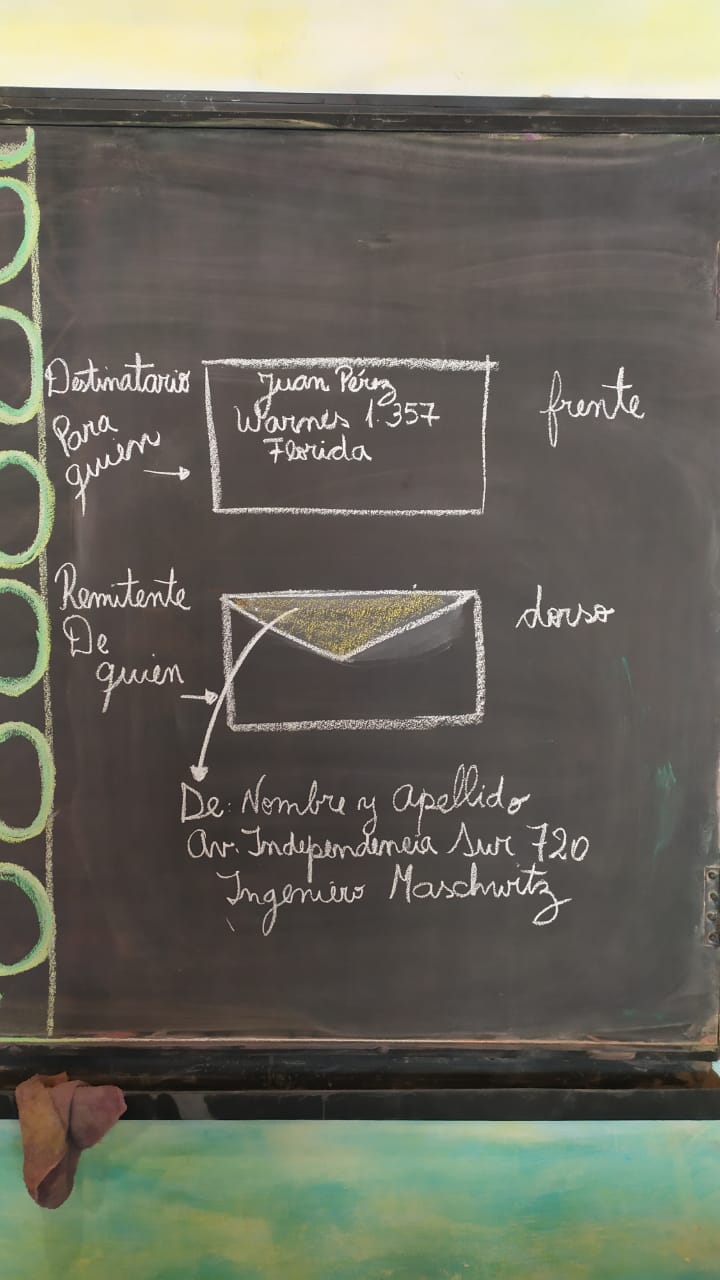 Destinatario
Para
quien
Juan Pérez
Warnes 1.357
Florida
frente
Remitente
De
quien
dorso
De: Nombre y Apellido
Av. Independencia Sur 720
Ingeniero Maschwitz